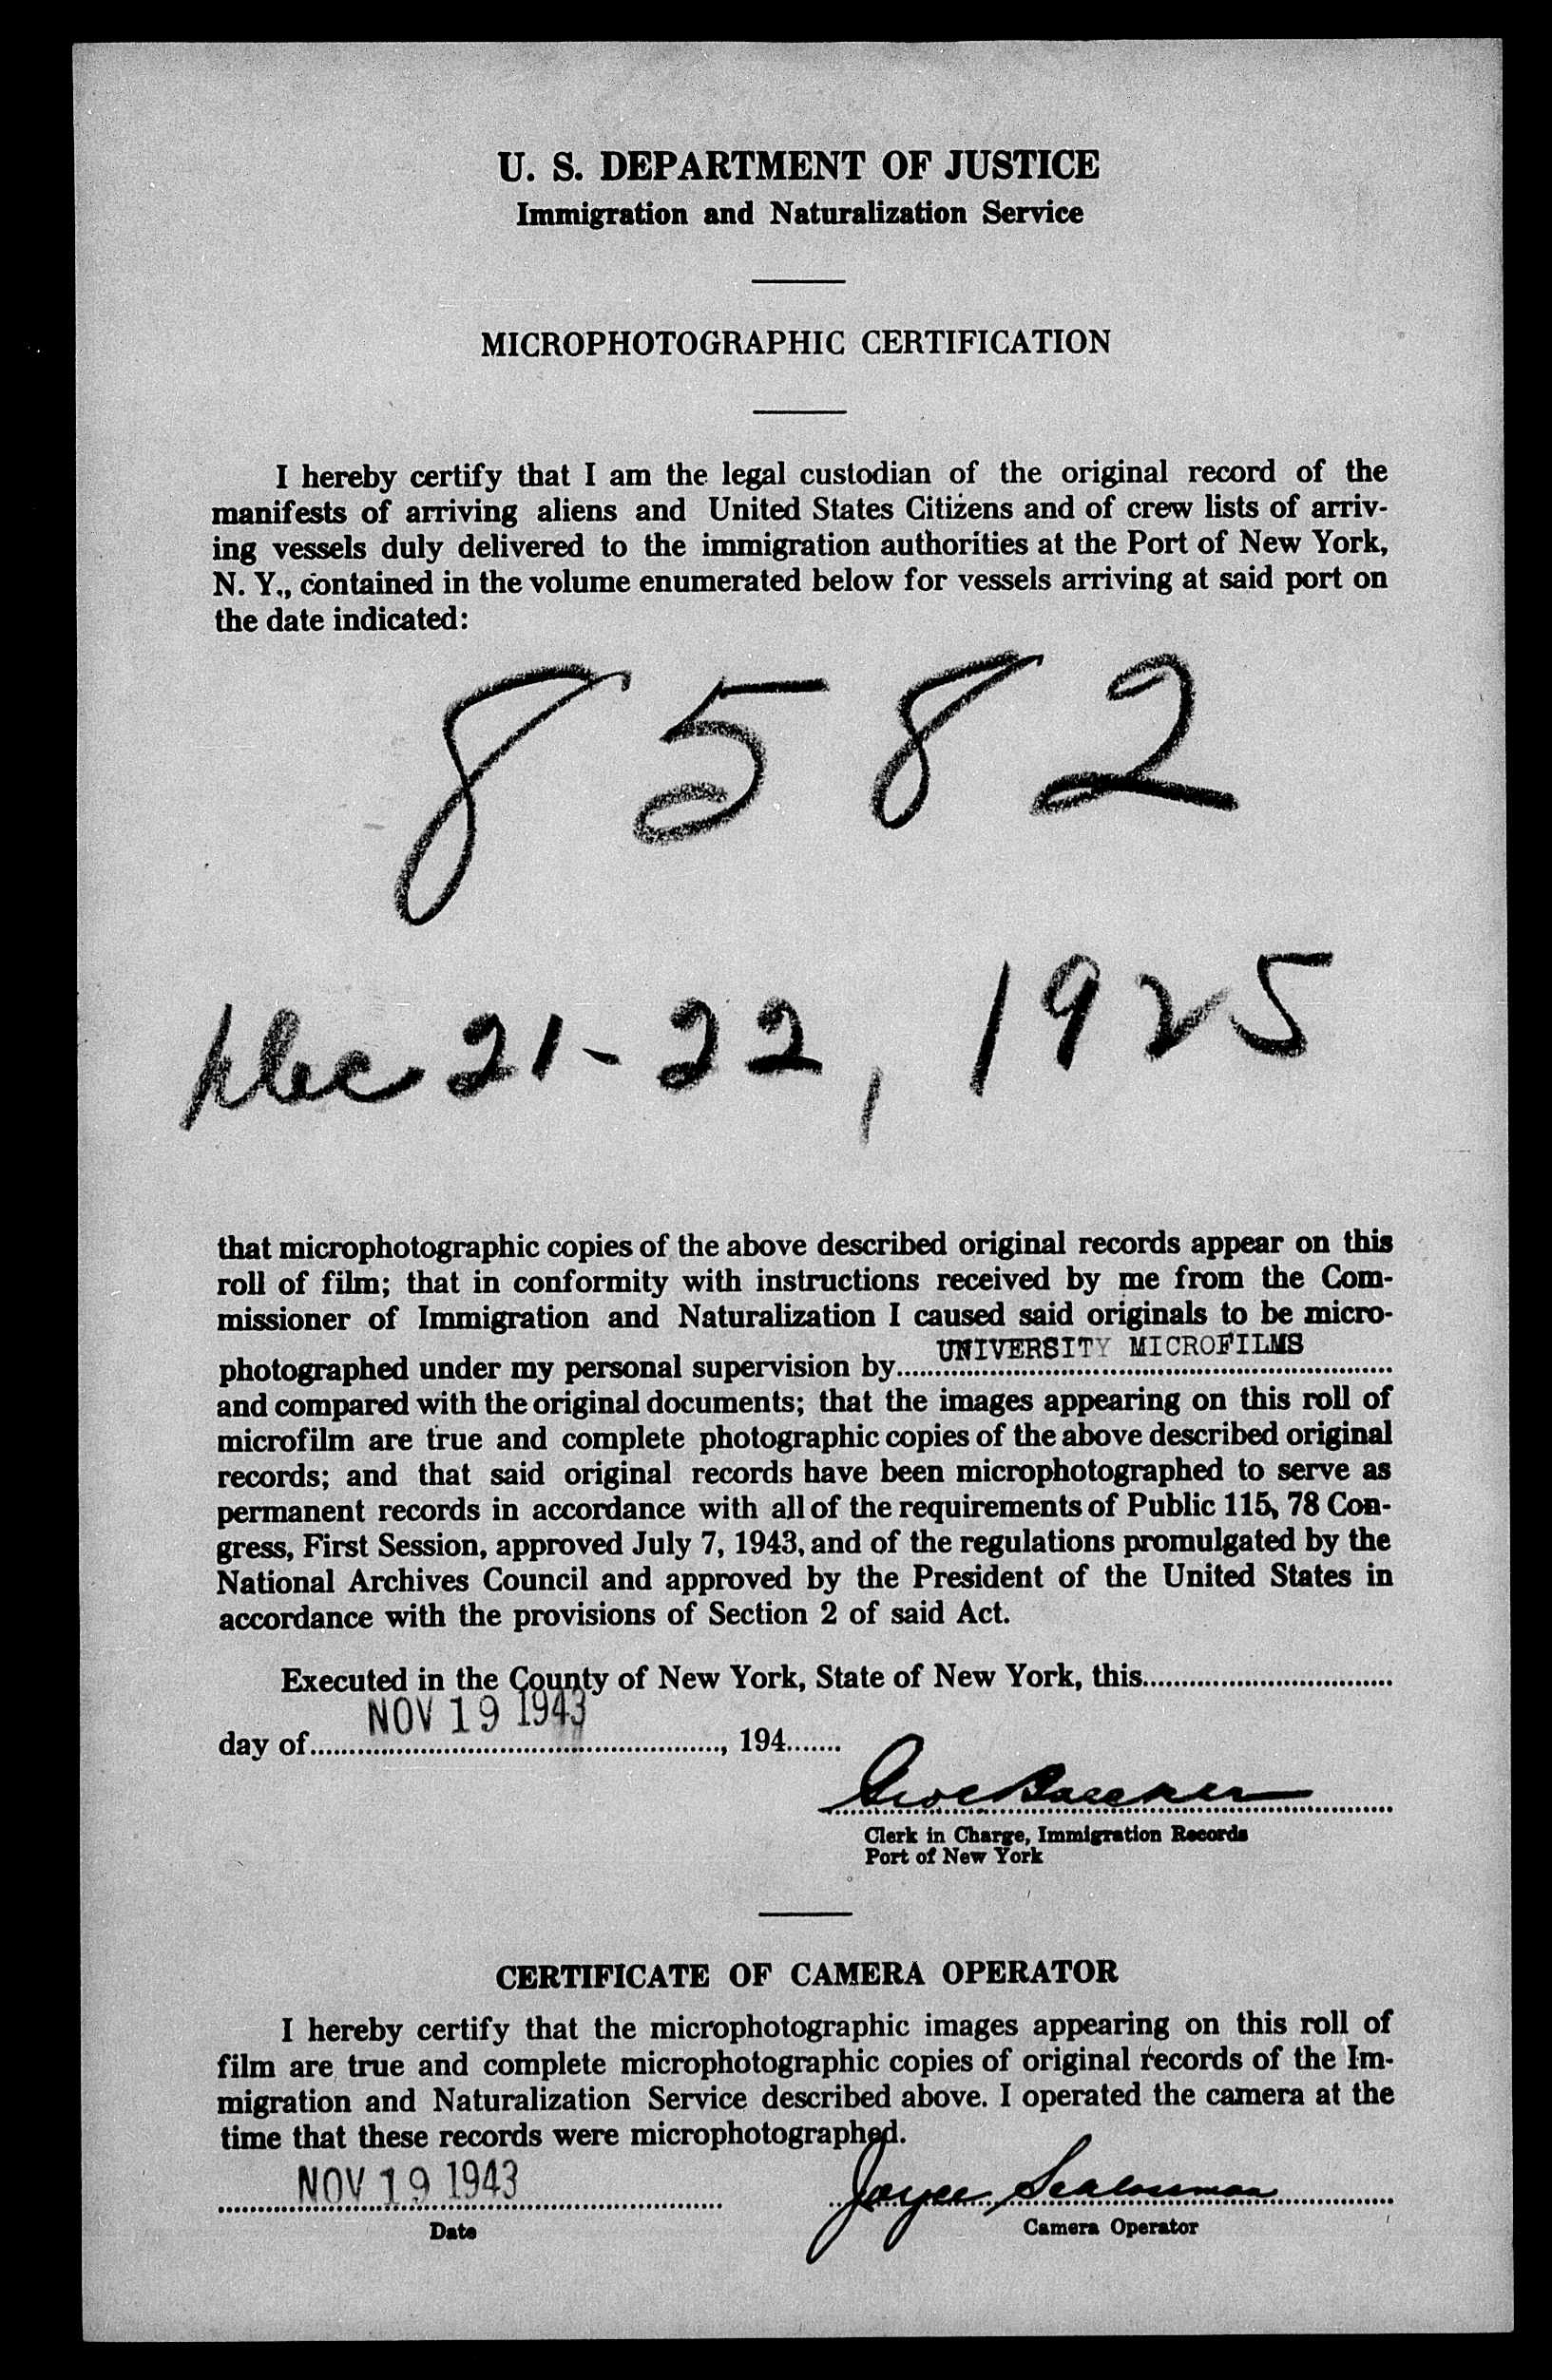 U. S. DEPARTMENT OF JUSTICE
Immigration and Naturalization Service
MICROPHOTOGRAPHIC CERTIFICATION
I hereby certify that I am the legal custodian of the original record of the
manifests of arriving aliens and United States Citizens and of crew lists of arriv-
ing vessels duly delivered to the immigration authorities at the Port of New York,
N. Y., contained in the volume enumerated below for vessels arriving at said port on
the date indicated:
8582
Dec 21-22, 1925
that microphotographic copies of the above described original records appear on this
roll of film; that in conformity with instructions received by me from the Com-
missioner of Immigration and Naturalization I caused said originals to be micro-
photographed under my personal supervision by UNIVERSITY MICROFILMS
and compared with the original documents; that the images appearing on this roll of
microfilm are true and complete photographic copies of the above described original
records; and that said original records have been microphotographed to serve as
permanent records in accordance with all of the requirements of Public 115, 78 Con-
gress, First Session, approved July 7, 1943, and of the regulations promulgated by the
National Archives Council and approved by the President of the United States in
accordance with the provisions of Section 2 of said Act.
Executed in the County of New York, State of New York, this
day of NOV 19 1943, 194
Clerk in Charge, Immigration Records
Port of New York
CERTIFICATE OF CAMERA OPERATOR
I hereby certify that the microphotographic images appearing on this roll of
film are true and complete microphotographic copies of original records of the Im-
migration and Naturalization Service described above. I operated the camera at the
time that these records were microphotographed.
NOV 19 1943 Joyce
Date Camera Operator